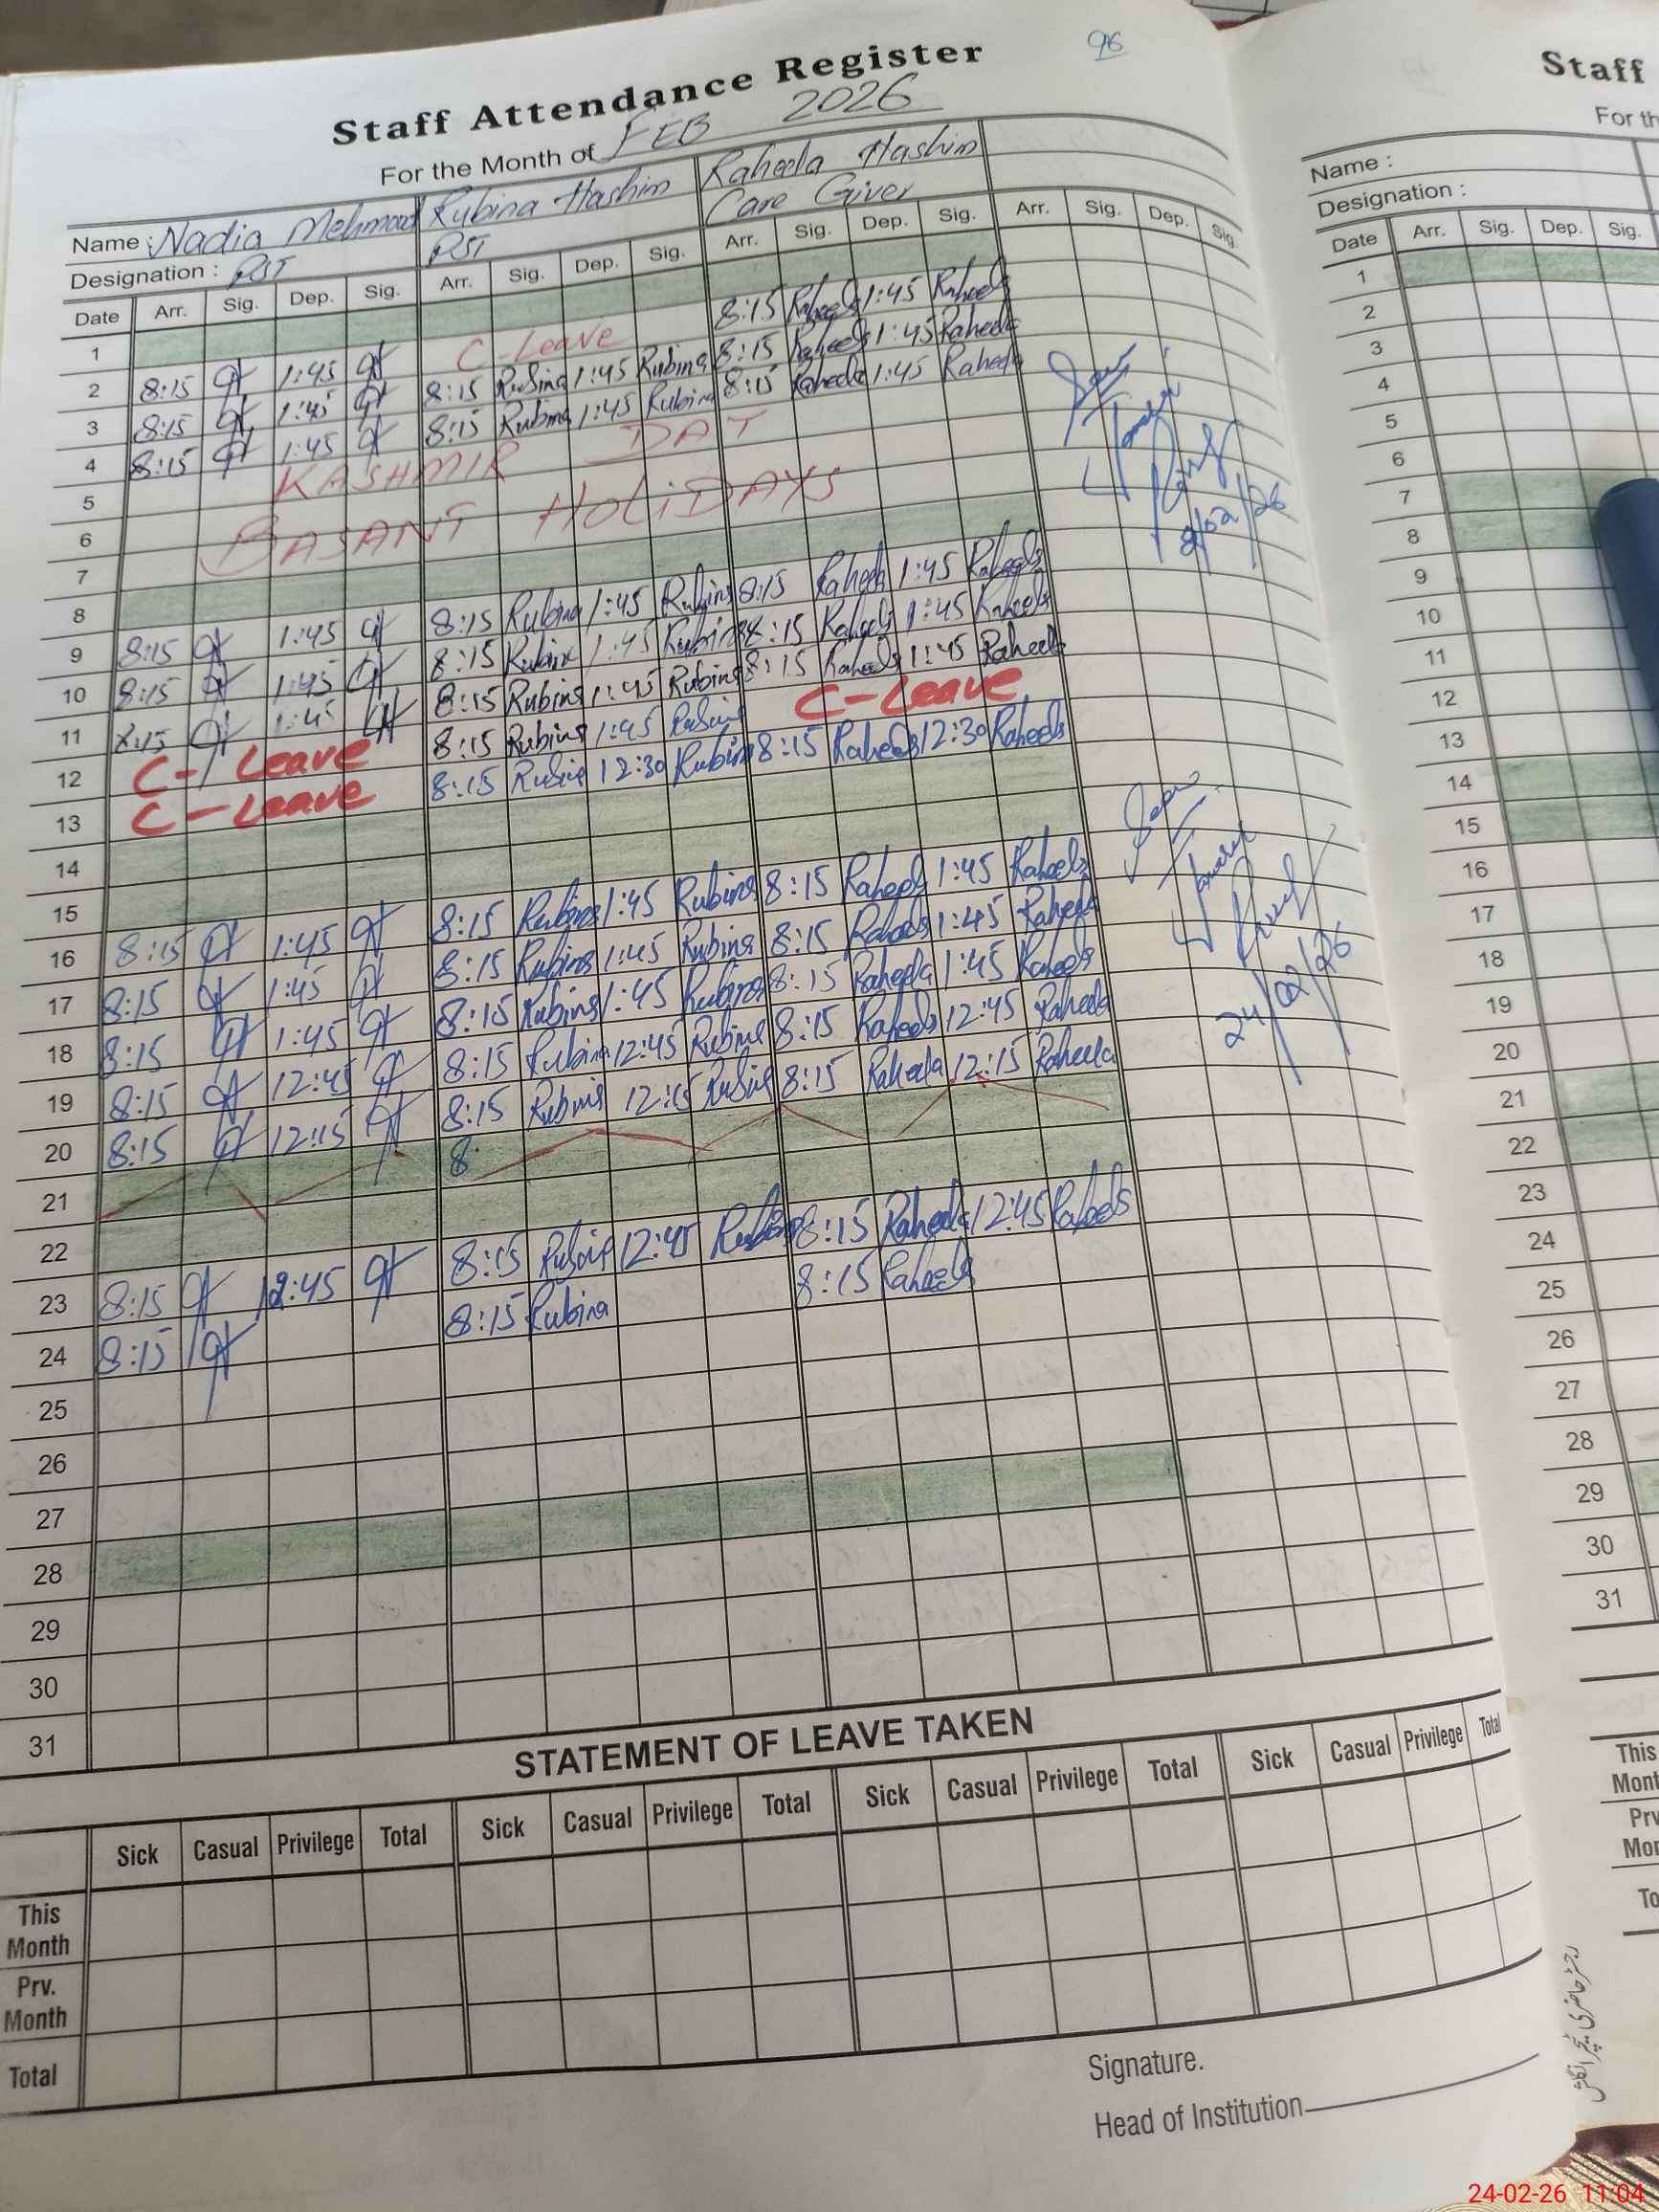 96
Staff Attendance Register
For the Month of FEB 2026
Name : Nadia Mehmood Rubina Hashim Raheela Hashim
Designation : PST PST Care Giver
Date Arr. Sig. Dep. Sig. Arr. Sig. Dep. Sig. Arr. Sig. Dep. Sig. Arr. Sig. Dep. Sig.
1
2 8:15 1:45 C-Leave 8:15 Raheela 1:45 Raheela
3 8:15 1:45 8:15 Rubina 1:45 Rubina 8:15 Raheela 1:45 Raheela
4 8:15 1:45 8:15 Rubina 1:45 Rubina 8:15 Raheela 1:45 Raheela
5 KASHMIR DAY
6 BASANT HOLiDAYS
7
8
9 8:15 1:45 8:15 Rubina 1:45 Rubina 8:15 Raheela 1:45 Raheela
10 8:15 1:45 8:15 Rubina 1:45 Rubina 8:15 Raheela 1:45 Raheela
11 8:15 1:45 8:15 Rubina 1:45 Rubina 8:15 Raheela 1:45 Raheela
12 C-Leave 8:15 Rubina 1:45 Rubina C-Leave
13 C-Leave 8:15 Rubina 12:30 Rubina 8:15 Raheela 12:30 Raheela
14
15
16 8:15 1:45 8:15 Rubina 1:45 Rubina 8:15 Raheela 1:45 Raheela
17 8:15 1:45 8:15 Rubina 1:45 Rubina 8:15 Raheela 1:45 Raheela
18 8:15 1:45 8:15 Rubina 1:45 Rubina 8:15 Raheela 1:45 Raheela
19 8:15 12:45 8:15 Rubina 12:45 Rubina 8:15 Raheela 12:45 Raheela
20 8:15 12:15 8:15 Rubina 12:15 Rubina 8:15 Raheela 12:15 Raheela
21 8
22
23 8:15 12:45 8:15 Rubina 12:45 Rubina 8:15 Raheela 12:45 Raheela
24 8:15 8:15 Rubina 8:15 Raheela
25
26
27
28
29
30
31
24/02/26
STATEMENT OF LEAVE TAKEN
Sick Casual Privilege Total Sick Casual Privilege Total Sick Casual Privilege Total Sick Casual Privilege Total
This Month
Prv. Month
Total
Signature.
Head of Institution
Staff
For th
Name :
Designation :
Date Arr. Sig. Dep. Sig.
1
2
3
4
5
6
7
8
9
10
11
12
13
14
15
16
17
18
19
20
21
22
23
24
25
26
27
28
29
30
31
This
Mont
Prv
Mon
To
24-02-26 11:04